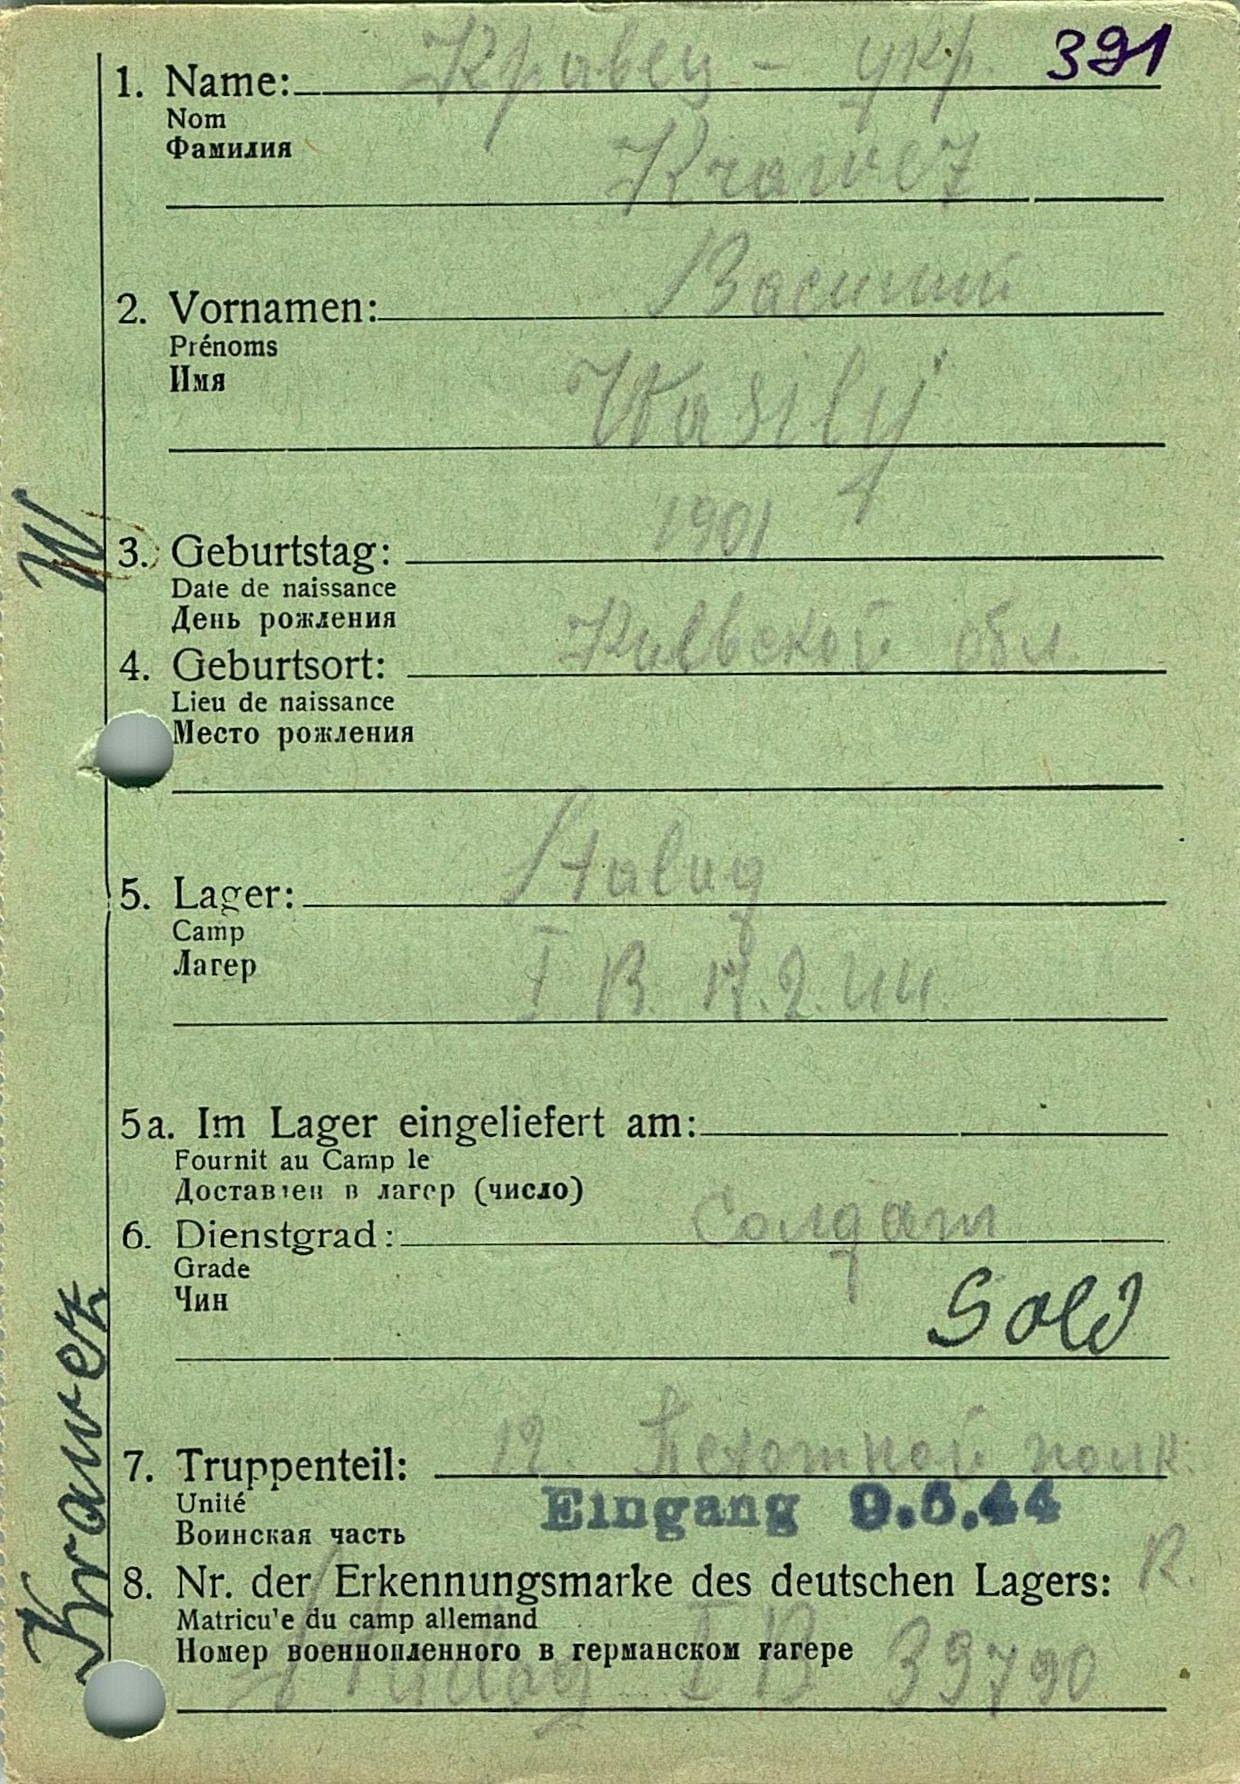 391
1. Name: Кравец - укр.
Nom
Фамилия
Krawez
2. Vornamen: Василий
Prénoms
Имя
Wasilij
W
3. Geburtstag: 1901
Date de naissance
День рождения
4. Geburtsort: Киевской обл.
Lieu de naissance
Место рождения
5. Lager: Stalag
Camp
Лагер
I B. 17.2.44.
5a. Im Lager eingeliefert am:
Fournit au Camp le
Доставлен в лагер (число)
6. Dienstgrad: Солдат
Grade
Чин
Sold
Krawetz
7. Truppenteil: 12. Пехотной полк.
Unité
Воинская часть
Eingang 9.5.44
R.
8. Nr. der Erkennungsmarke des deutschen Lagers:
Matricu'e du camp allemand
Номер военнопленного в германском гагере
Stalag I B 39790